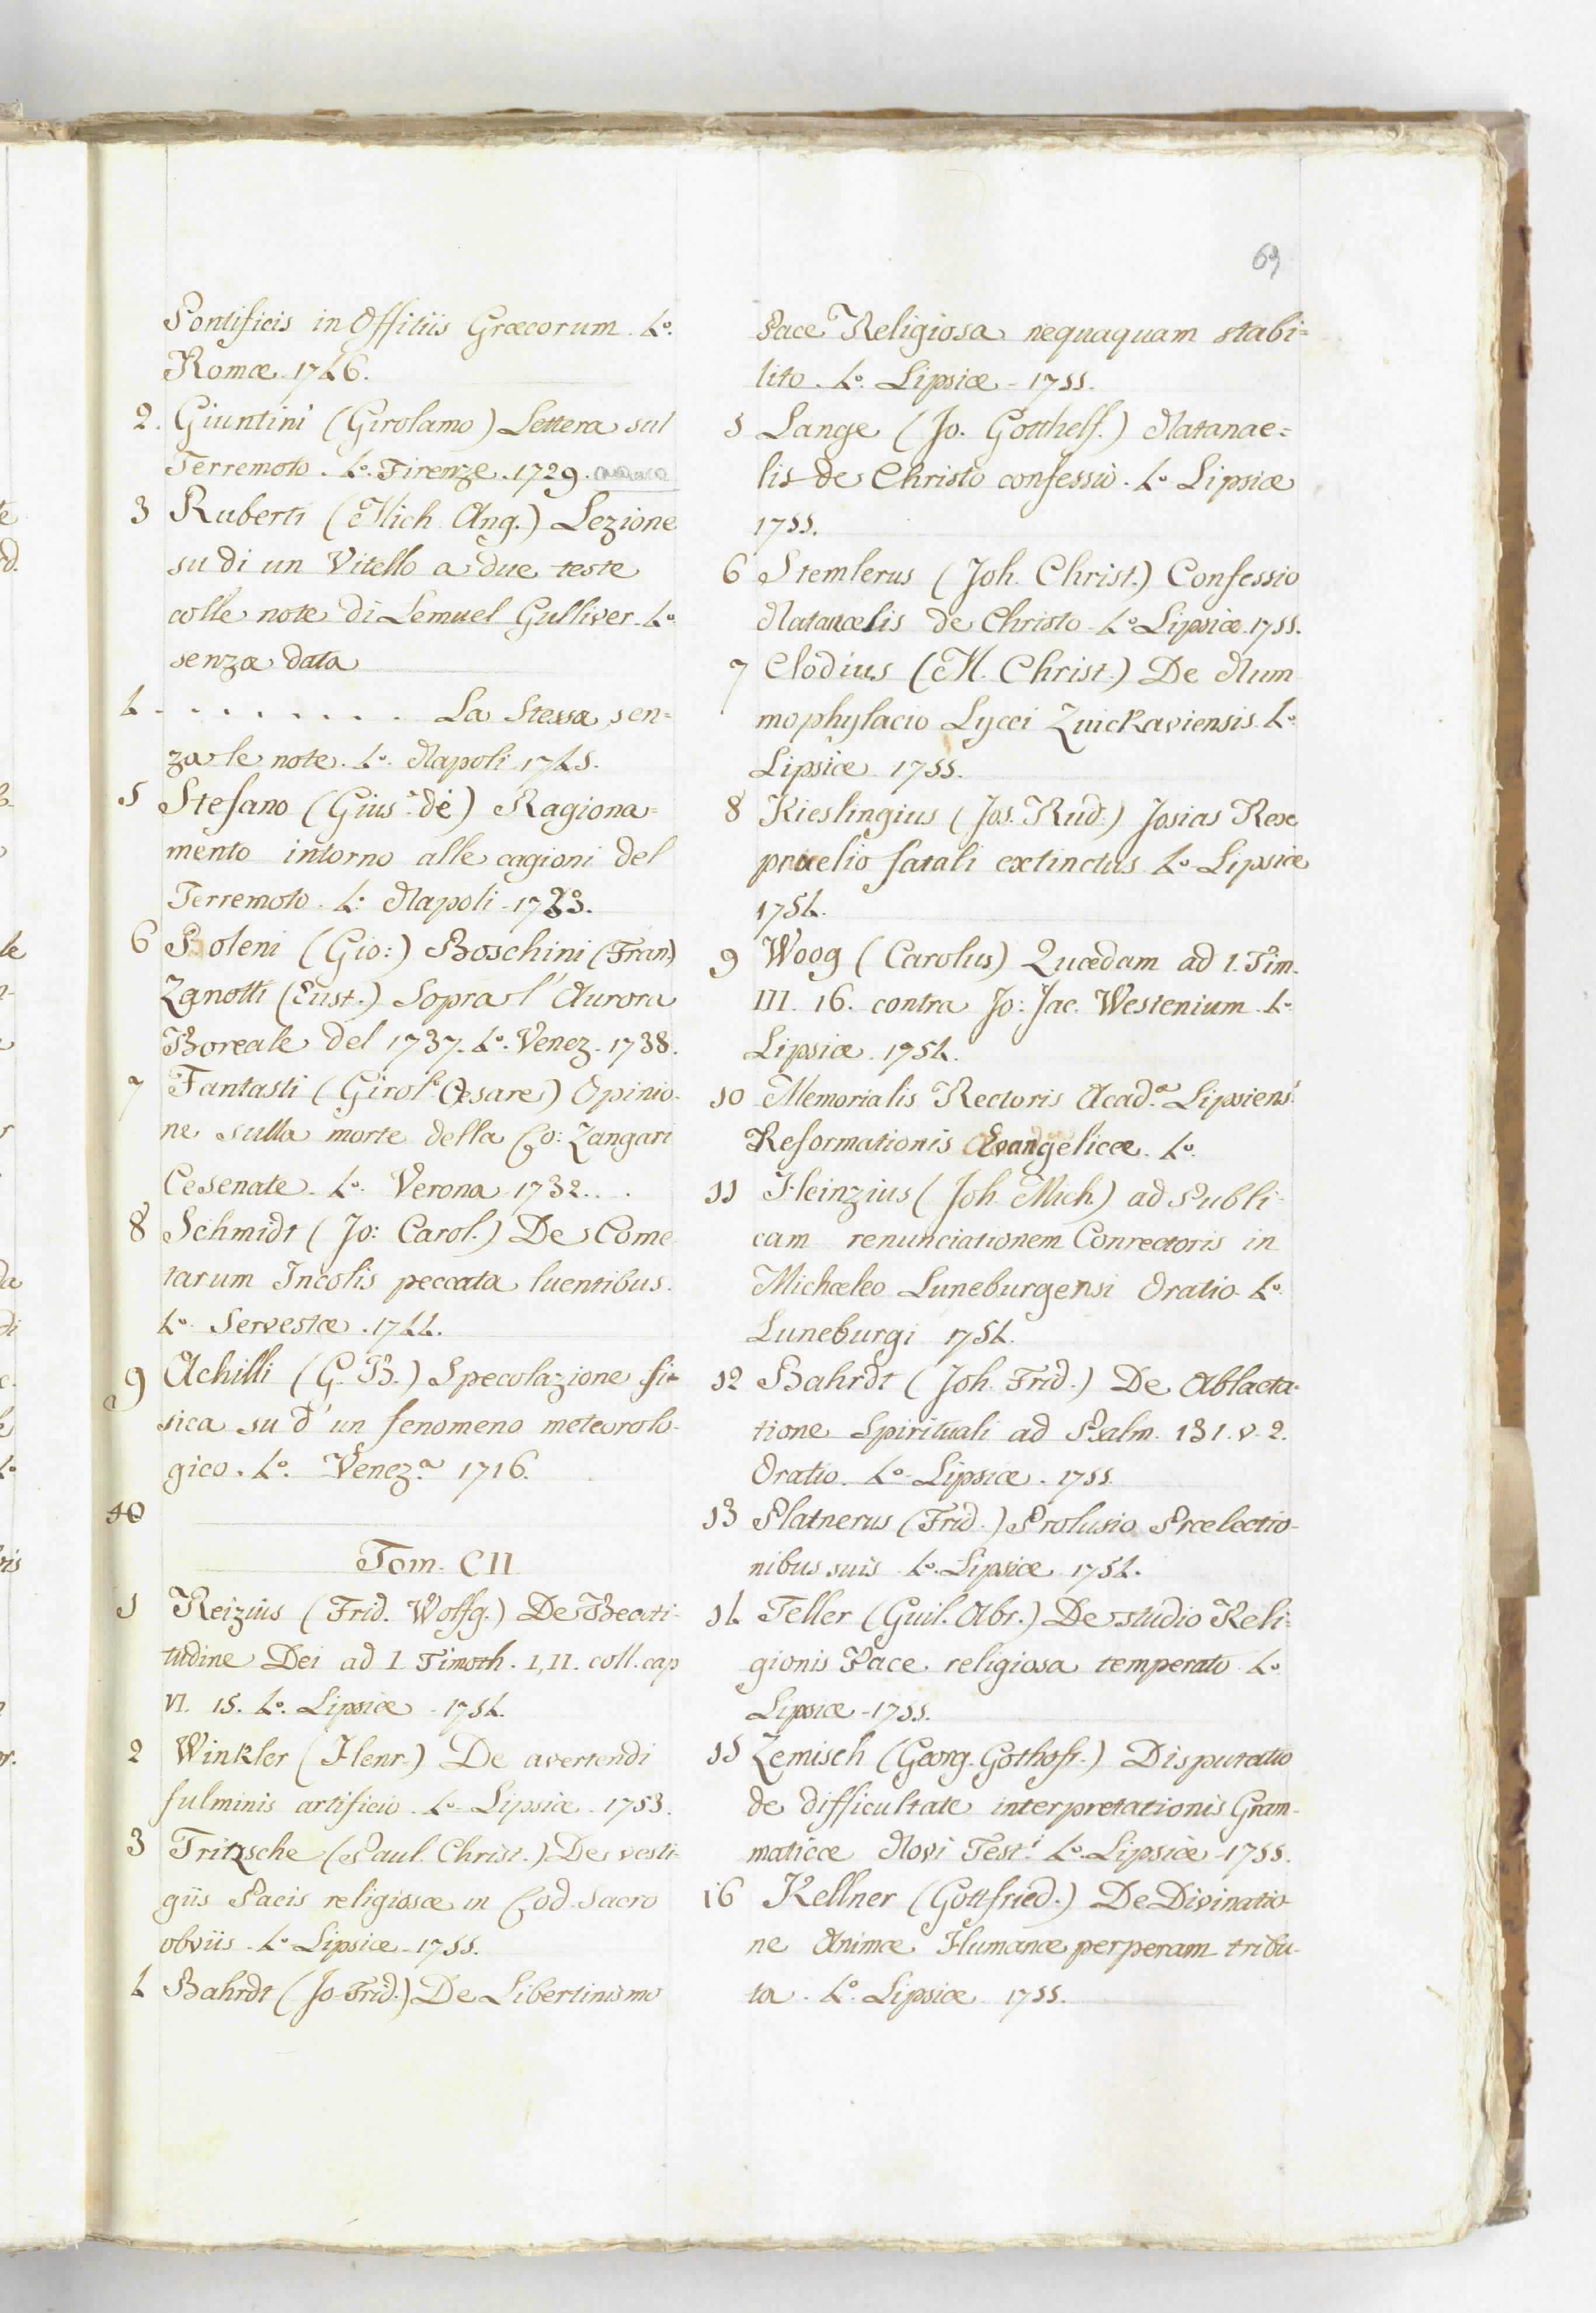 69
Pontificis in Offitiis Græcorum. 4º.
Romæ 1746.
2. Giuntini (Girolamo) Lettera sul
Terremoto. 4º. Firenze. 1729.
3 Ruberti (Mich. Ang.) Lezione
su di un Vitello a due teste
colle note di Lemuel Gulliver. 4º.
senza data
4 . . . . . . . . . La Stessa sen=
za le note. 4º. Napoli 1745.
5 Stefano (Gius.ͤ de) Ragiona=
mento intorno alle cagioni del
Terremoto. 4º. Napoli 1733.
6 Poleni (Gio:) Boschini (Fran.)
Zanotti (Eust.) Sopra l'Aurora
Boreale del 1737. 4º. Venez. 1738.
7 Fantasti (Girol.º Cesare) Opinio-
ne sulla morte della Co: Zangari
Cesenate. 4º. Verona 1732. . .
8 Schmidt (Jo: Carol.) De Come
tarum Incolis peccata luentibus.
4º. Servestæ. 1744.
9 Achilli (G. B.) Specolazione fi-
sica su d'un fenomeno meteorolo-
gico. 4º. Venez.ª 1716.
10
Tom. CII
1 Reizius (Frid. Wolfg.) De Beati-
tudine Dei ad I Timoth. I, II. coll. cap
VI. 15. 4º. Lipsiæ 1754.
2 Winkler (Henr.) De avertendi
fulminis artificio. 4º. Lipsiæ 1753.
3 Fritzsche (Paul. Christ.) De vesti=
giis Pacis religiosæ in Cod. Sacro
obviis. 4º. Lipsiæ 1755.
4 Bahrdt (Jo. Frid.) De Libertinismo
Pace Religiosa nequaquam stabi=
lito. 4º. Lipsiæ 1755.
5 Lange (Jo. Gotthelf.) Natanae=
lis de Christo confessio. 4º Lipsiæ
1755.
6 Stemlerus (Joh. Christ.) Confessio
Natanælis de Christo. 4º Lipsiæ. 1755.
7 Clodius (M. Christ.) De Num
mophylacio Lycei Zuickaviensis. 4º.
Lipsiæ 1755.
8 Kieslingius (Jos. Rud.) Josias Rex
praelio fatali extinctus. 4º Lipsiæ
1754.
9 Woog (Carolus) Quædam ad I. Tim.
III. 16. contra Jo: Jac. Westenium. 4º.
Lipsiæ 1754.
10 Memorialis Rectoris Acad.ª Lipsiens.
Reformationis Evangelicæ. 4º.
11 Heinzius (Joh. Mich.) ad Publi-
cam renunciationem Conrectoris in
Michæleo Luneburgensi Oratio. 4º.
Luneburgi 1754.
12 Bahrdt (Joh. Frid.) De Ablacta-
tione Spirituali ad Psalm. 131. v. 2.
Oratio. 4º. Lipsiæ. 1755.
13 Platnerus (Frid.) Prolusio Prælectio-
nibus suis 4º. Lipsiæ 1754.
14 Teller (Guil. Abr.) De studio Reli=
gionis Pace religiosa temperato. 4º.
Lipsiæ 1755.
15 Zemisch (Georg. Gothofr.) Disputatio
de difficultate interpretationis Gram-
maticæ Novi Test.i 4º. Lipsiæ 1755.
16 Kellner (Gottfried.) De Divinatio-
ne Animæ Humanæ perperam tribu-
ta. 4º. Lipsiæ 1755.